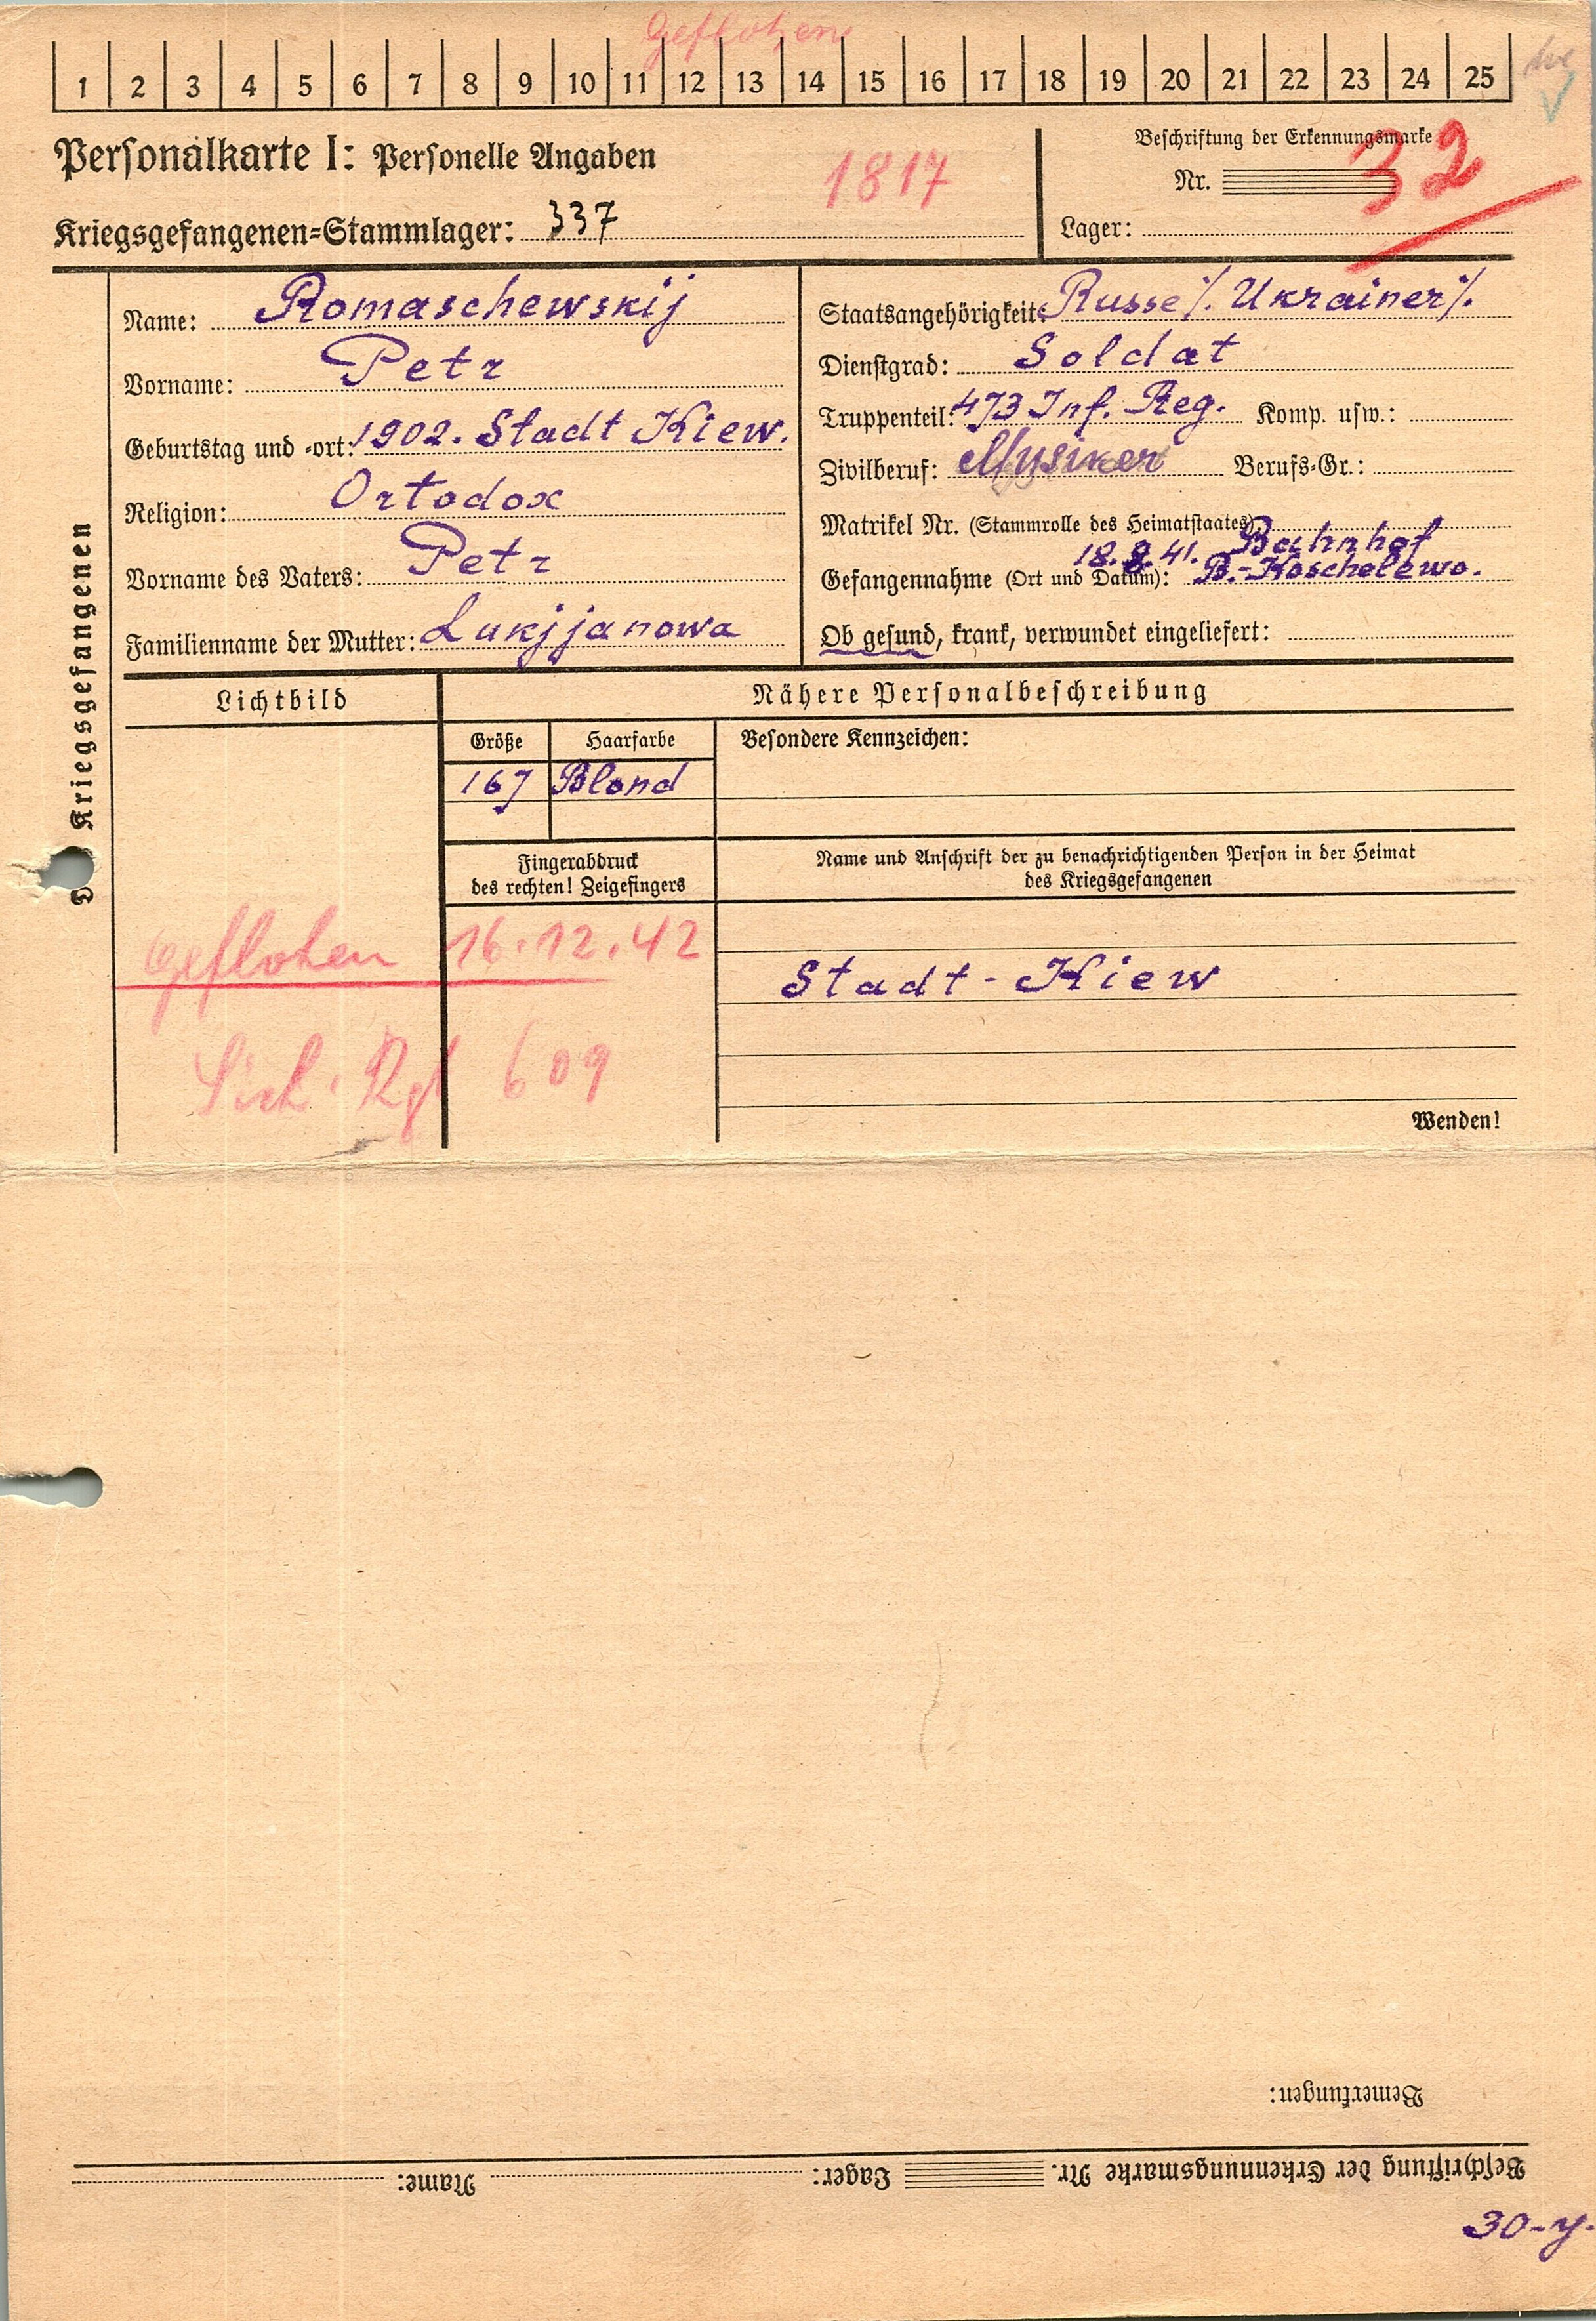 Geflohen
1 2 3 4 5 6 7 8 9 10 11 12 13 14 15 16 17 18 19 20 21 22 23 24 25
Personalkarte I: Personelle Angaben
1817
Kriegsgefangenen=Stammlager: 337
Beschriftung der Erkennungsmarke
Nr. 32
Lager:
Kriegsgefangenen
Name: Romaschewskij
Vorname: Petr
Geburtstag und -ort: 1902. Stadt Kiew.
Religion: Ortodox
Vorname des Vaters: Petr
Familienname der Mutter: Lukjjanowa
Staatsangehörigkeit: Russe ./. Ukrainer ./.
Dienstgrad: Soldat
Truppenteil: 473 Inf. Reg. Komp. usw.:
Zivilberuf: Mysiker Berufs=Gr.:
Matrikel Nr. (Stammrolle des Heimatstaates)
Gefangennahme (Ort und Datum): 18.8.41. Bahnhof
B.-Koschelewo.
Ob gesund, krank, verwundet eingeliefert:
Lichtbild
Nähere Personalbeschreibung
Größe Haarfarbe
Besondere Kennzeichen:
167 Blond
Fingerabdruck
des rechten! Zeigefingers
Name und Anschrift der zu benachrichtigenden Person in der Heimat
des Kriegsgefangenen
Geflohen 16.12.42
Stadt-Kiew
Sich. Rgt 609
Wenden!
Bemerkungen:
Beschriftung der Erkennungsmarke Nr. Lager: Name:
30-y.